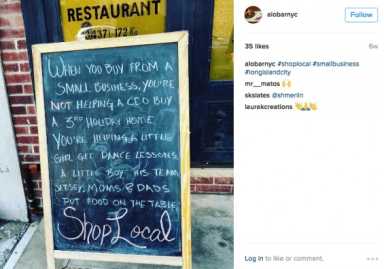 RESTAURANT
WHEN YOU BUY FROM A
SMALL BUSINESS, YOU'RE
NOT HELPING A CEO BUY
A 3RD HOLIDAY HOME.
YOU'RE HELPING A LITTLE
GIRL GET DANCE LESSONS,
A LITTLE BOY HIS TEAM
JERSEY, MOMS & DADS
PUT FOOD ON THE TABLE
Shop Local
alobarnyc
Follow
35 likes
alobarnyc #shoplocal #smallbusiness
#longislandcity
mr__matos 🙌
skslates @shmerlin
laurekcreations
Log in to like or comment.